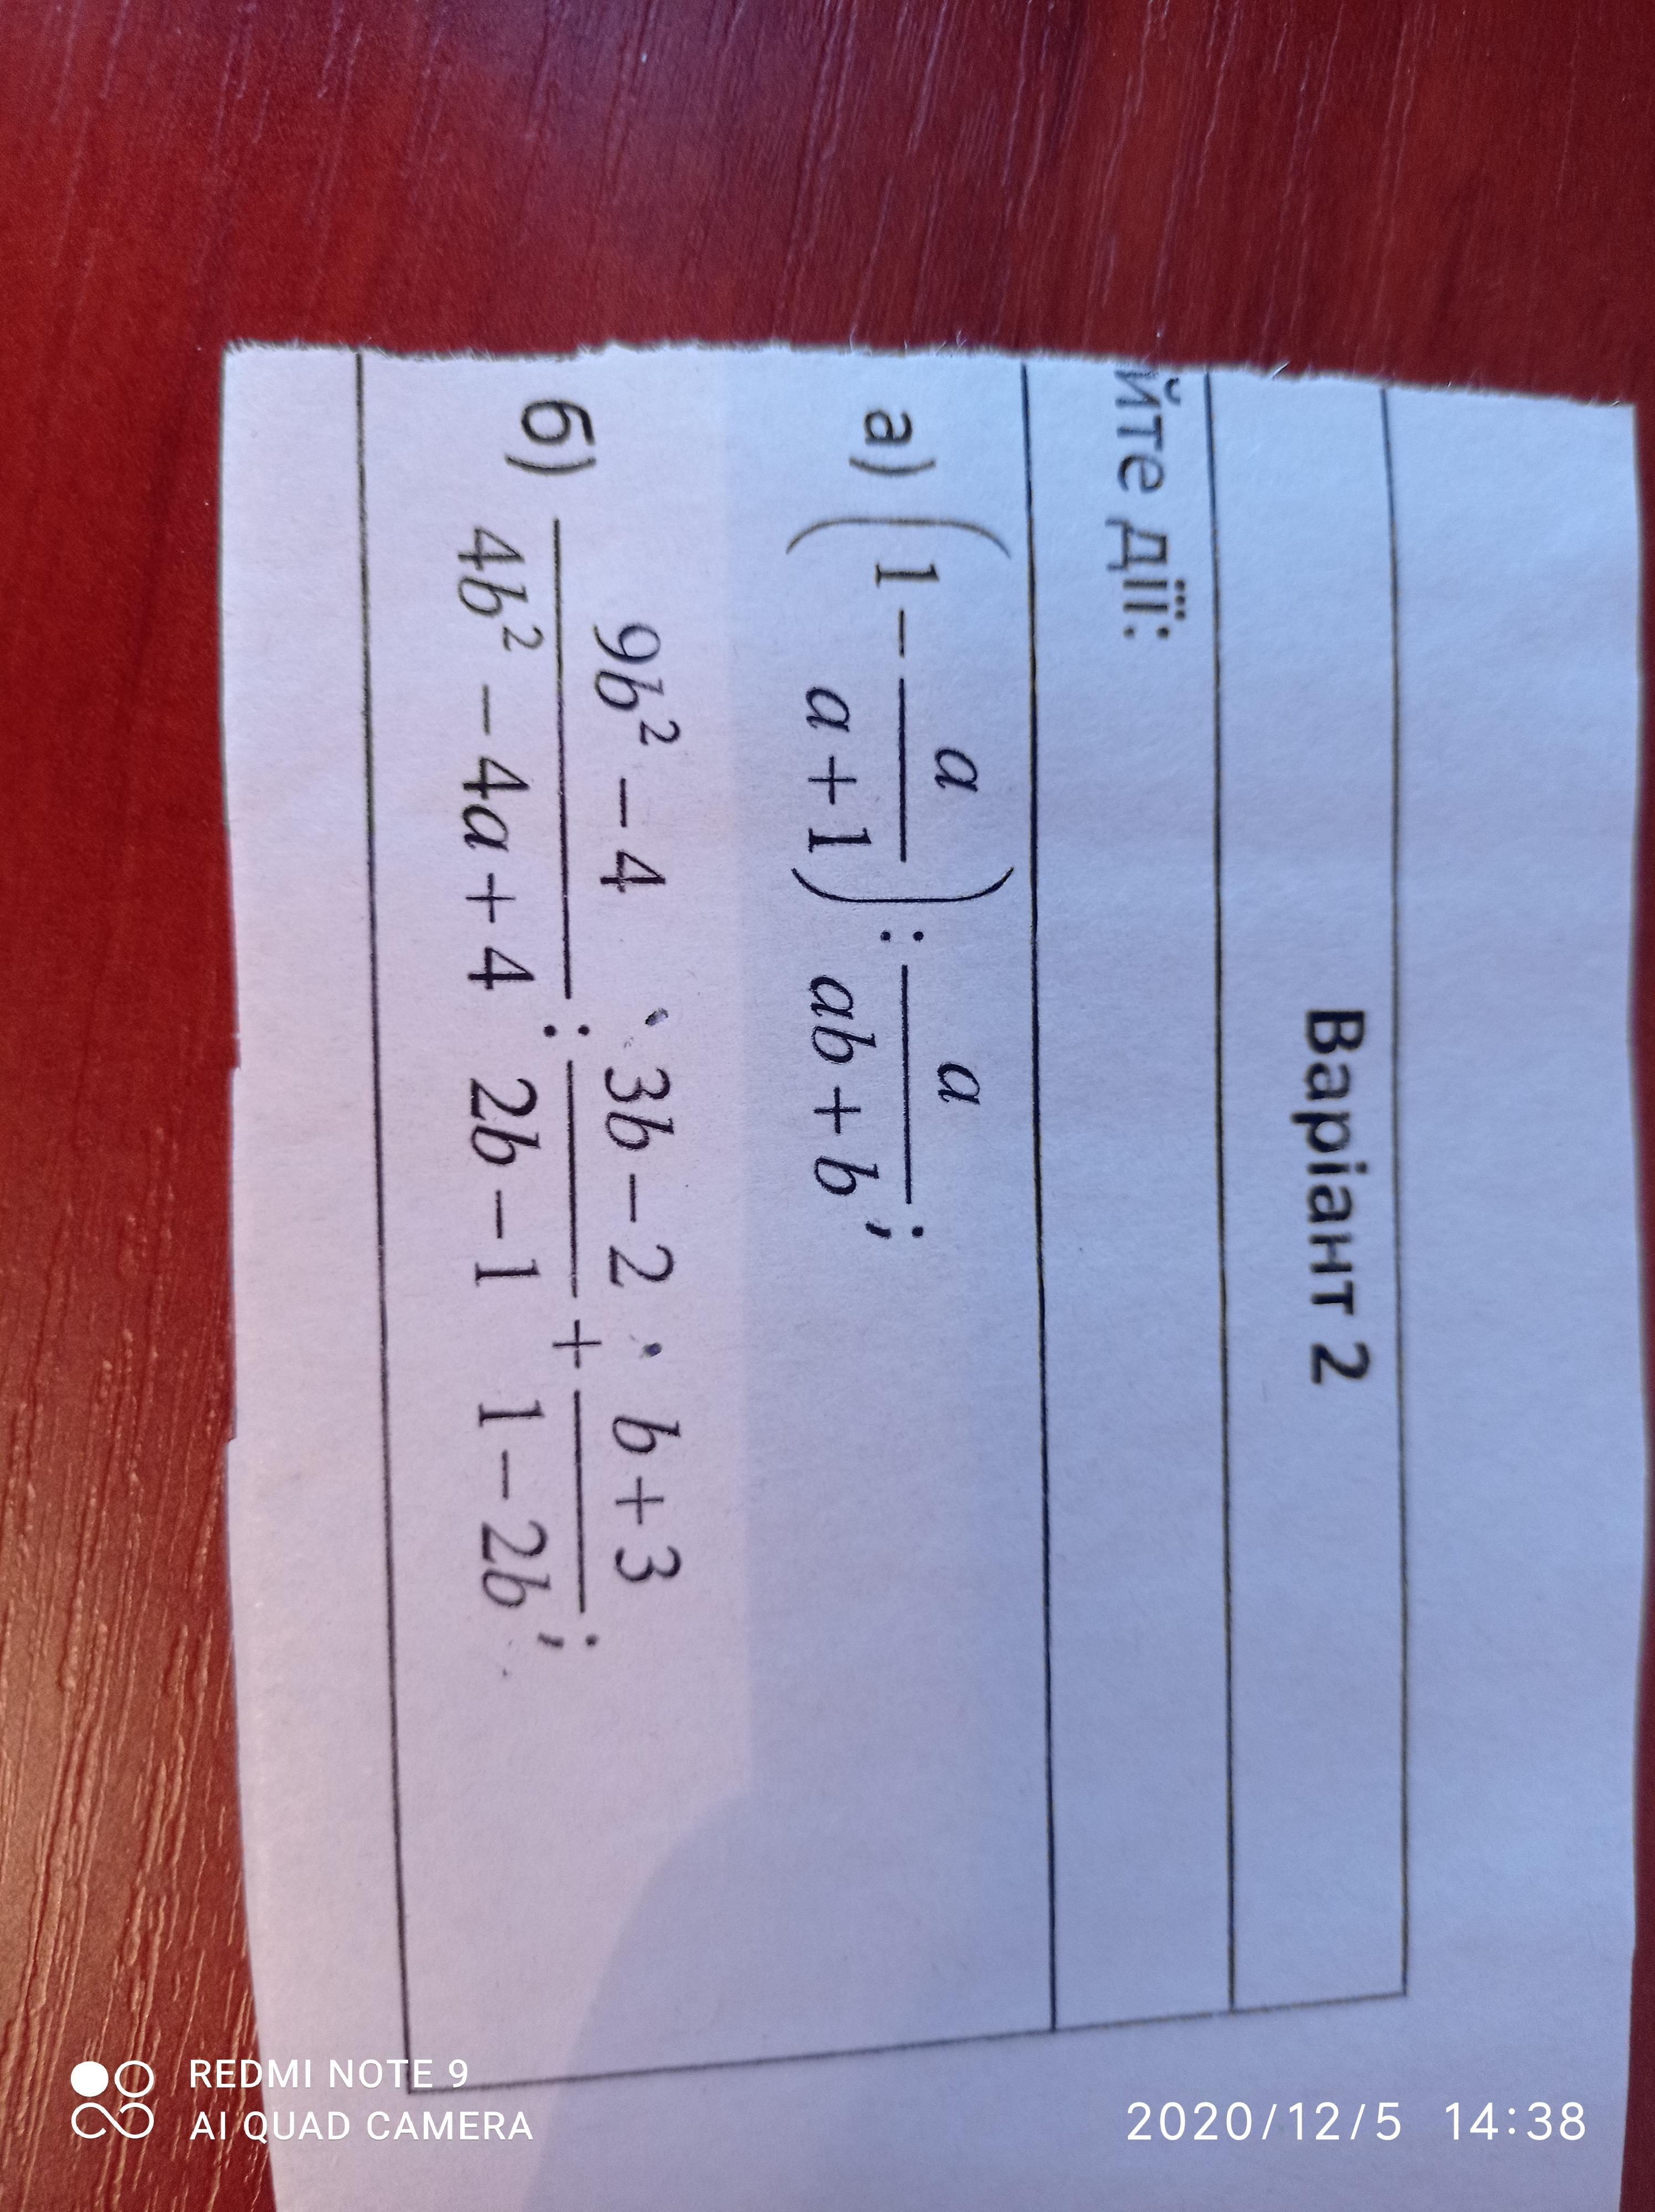 Варіант 2
йте дії:
а) (1 − a/(a + 1)) : a/(ab + b);
б) (9b² − 4)/(4b² − 4a + 4) : (3b − 2)/(2b − 1) + (b + 3)/(1 − 2b);
REDMI NOTE 9
AI QUAD CAMERA
2020/12/5 14:38